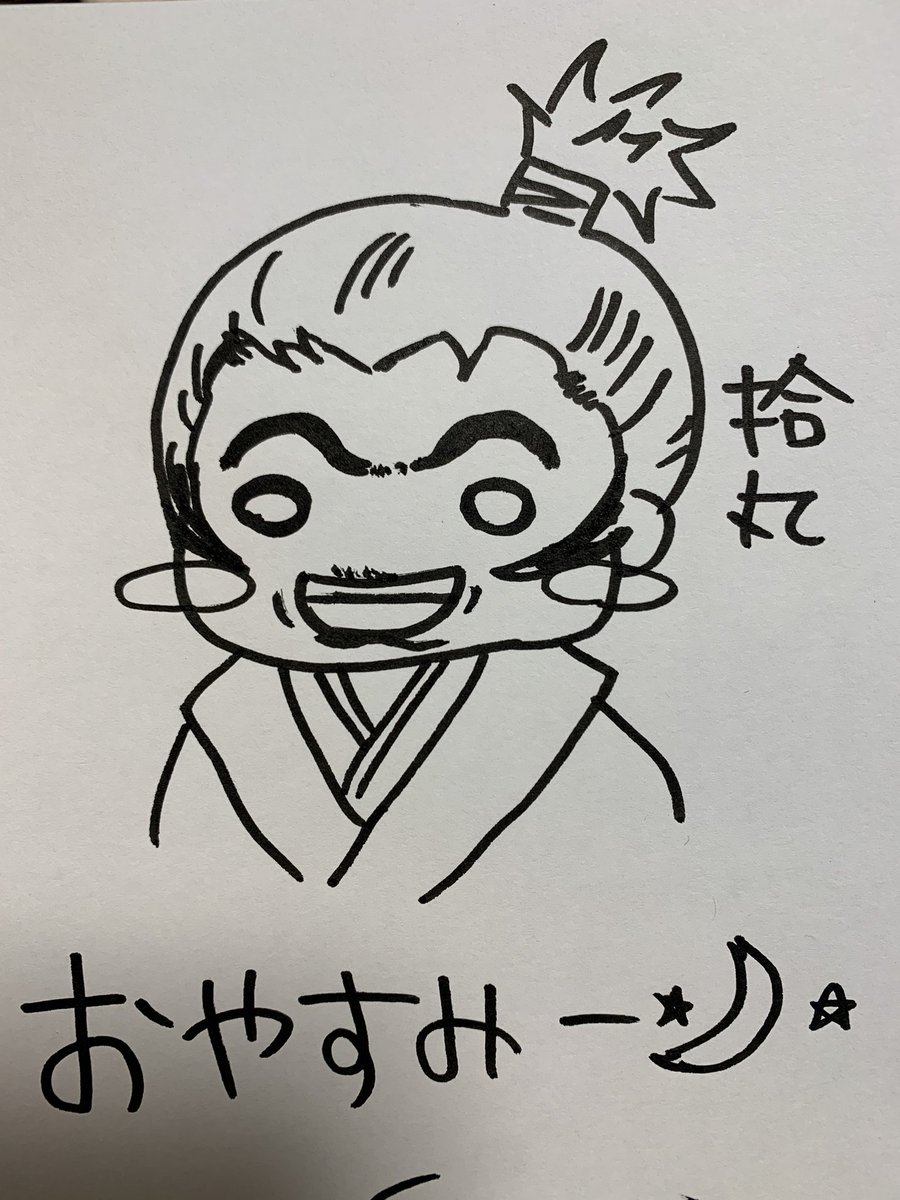 拾丸
おやすみー